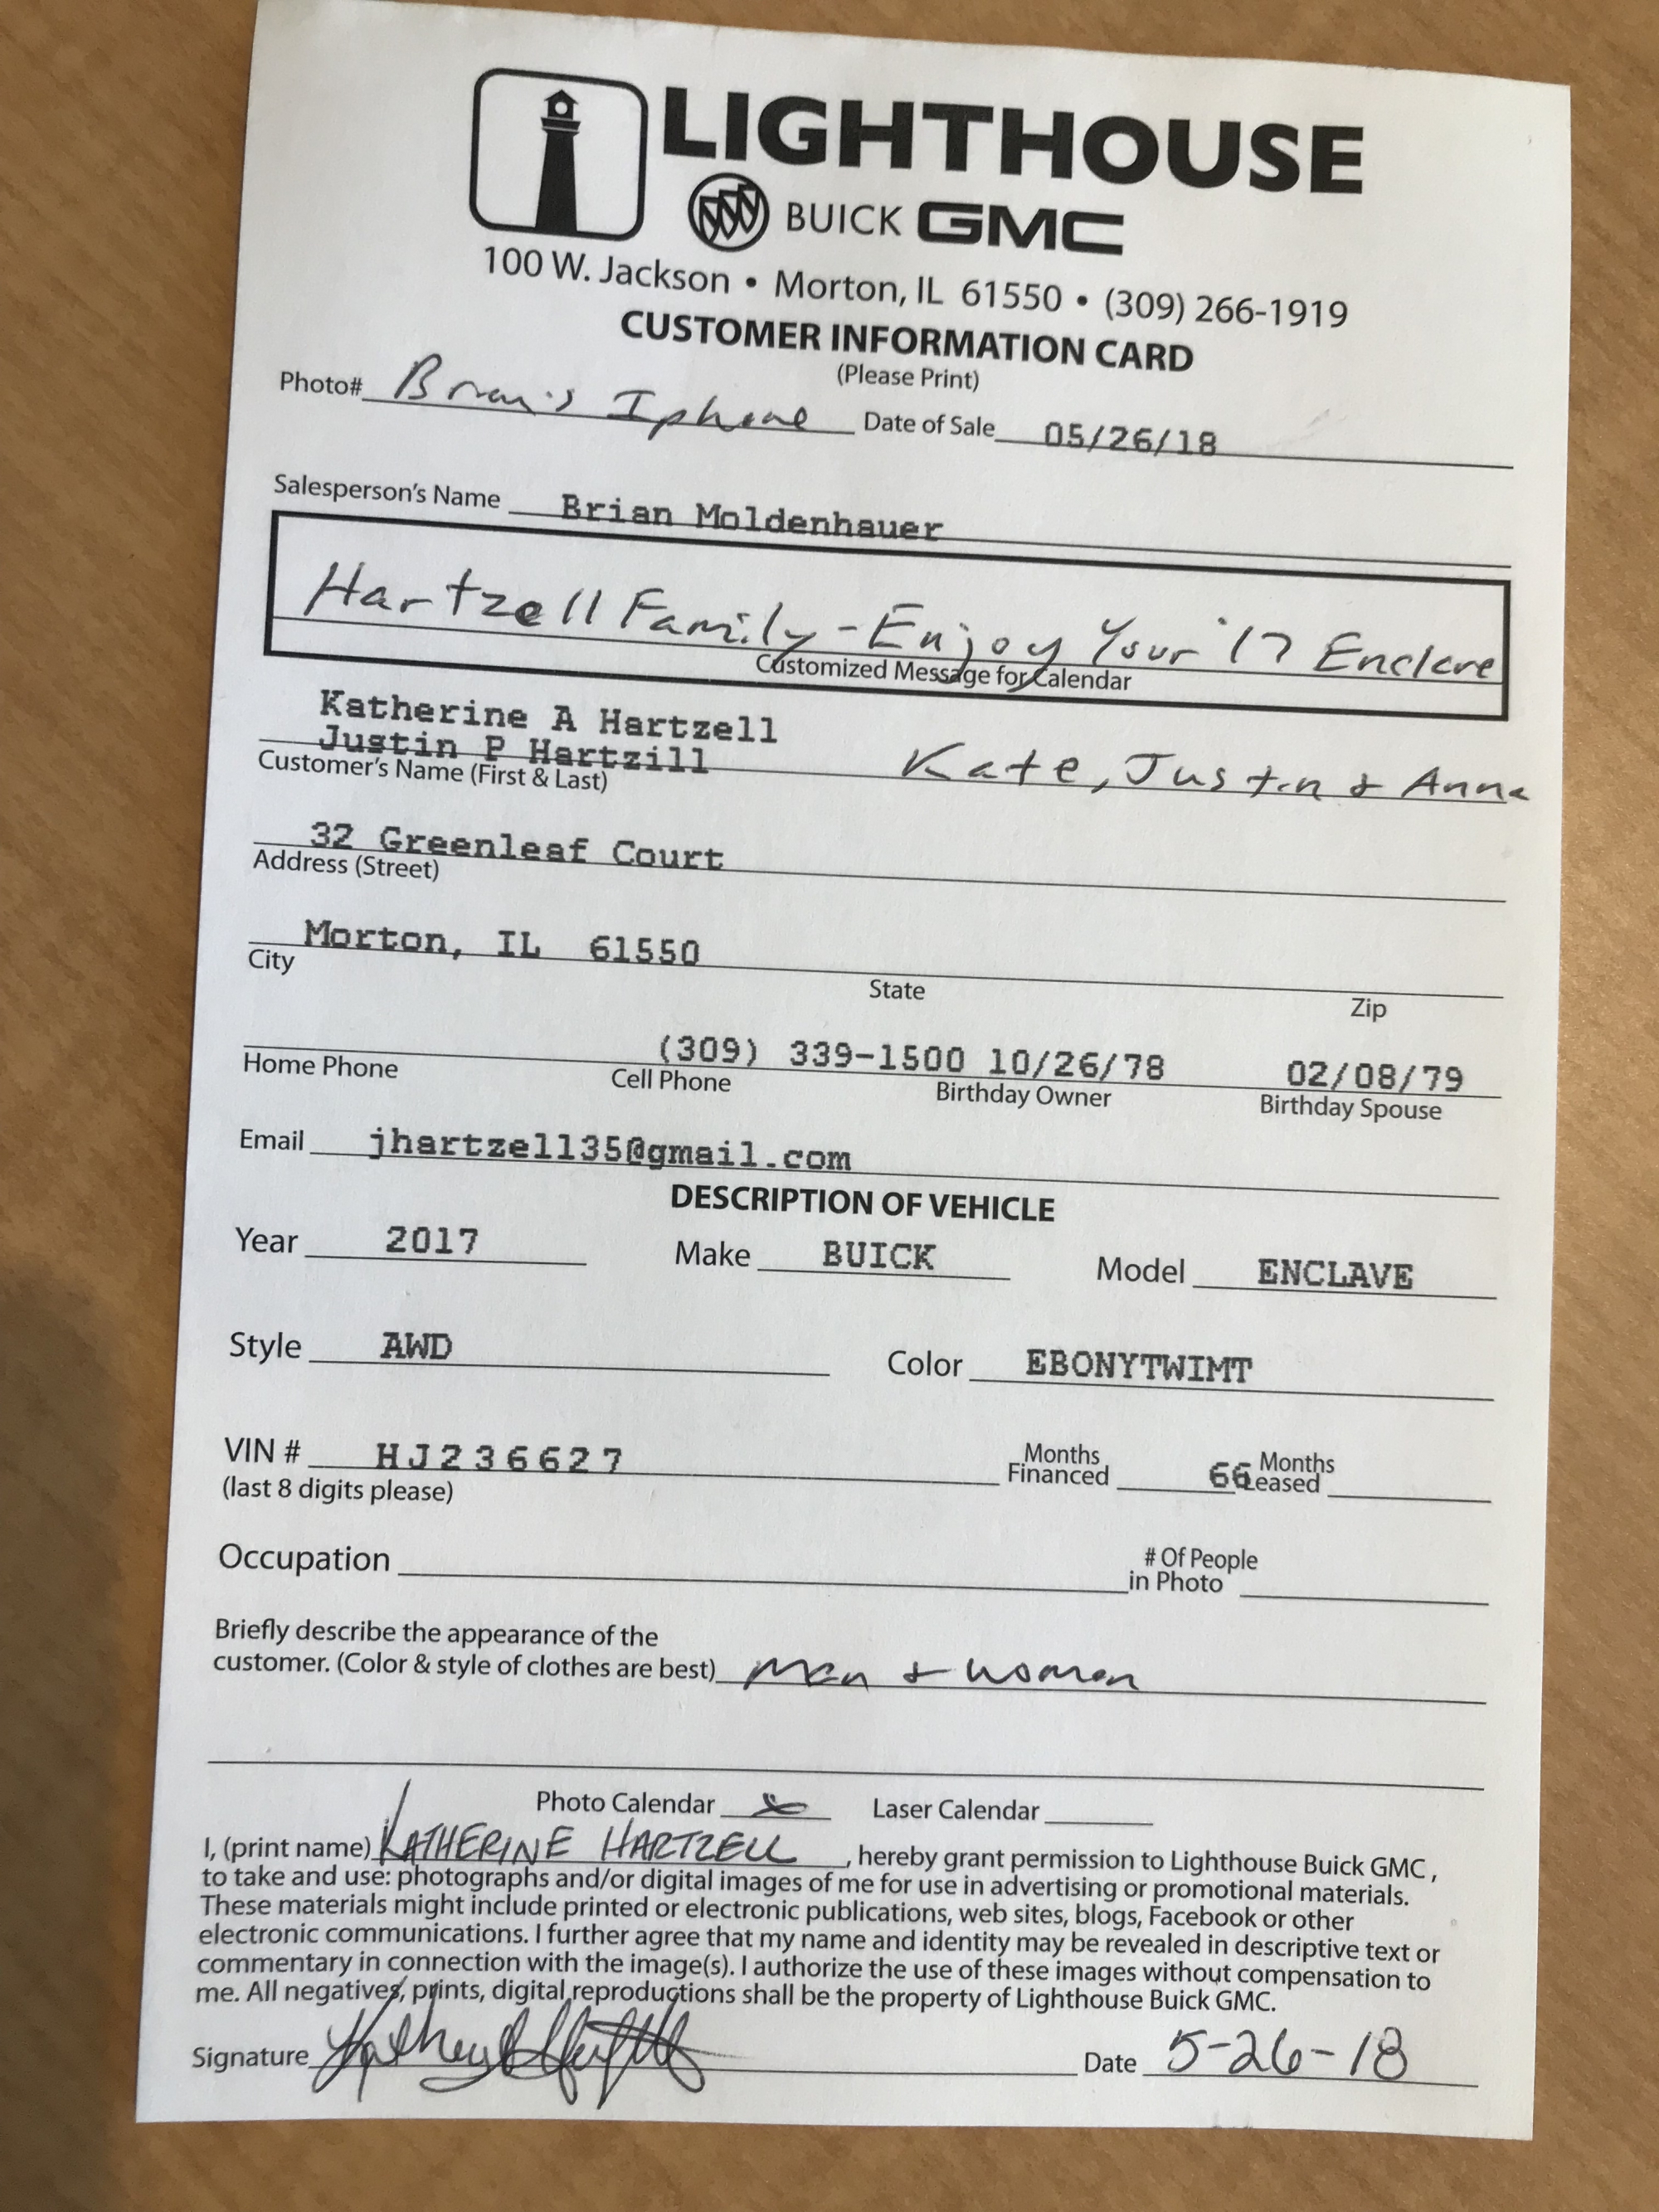 LIGHTHOUSE
BUICK GMC
100 W. Jackson • Morton, IL 61550 • (309) 266-1919
CUSTOMER INFORMATION CARD
(Please Print)
Photo# Brian's Iphone Date of Sale 05/26/18
Salesperson's Name Brian Moldenhauer
Hartzell Family - Enjoy Your '17 Enclave
Customized Message for Calendar
Katherine A Hartzell
Justin P Hartzill Kate, Justin & Anna
Customer's Name (First & Last)
32 Greenleaf Court
Address (Street)
Morton, IL 61550
City State Zip
(309) 339-1500 10/26/78 02/08/79
Home Phone Cell Phone Birthday Owner Birthday Spouse
Email jhartzell35@gmail.com
DESCRIPTION OF VEHICLE
Year 2017 Make BUICK Model ENCLAVE
Style AWD Color EBONYTWIMT
VIN # HJ236627 Months Financed 66 Months Leased
(last 8 digits please)
Occupation # Of People in Photo
Briefly describe the appearance of the
customer. (Color & style of clothes are best) Man & woman
Photo Calendar X Laser Calendar
I, (print name) KATHERINE HARTZELL, hereby grant permission to Lighthouse Buick GMC,
to take and use: photographs and/or digital images of me for use in advertising or promotional materials.
These materials might include printed or electronic publications, web sites, blogs, Facebook or other
electronic communications. I further agree that my name and identity may be revealed in descriptive text or
commentary in connection with the image(s). I authorize the use of these images without compensation to
me. All negatives, prints, digital reproductions shall be the property of Lighthouse Buick GMC.
Signature Date 5-26-18